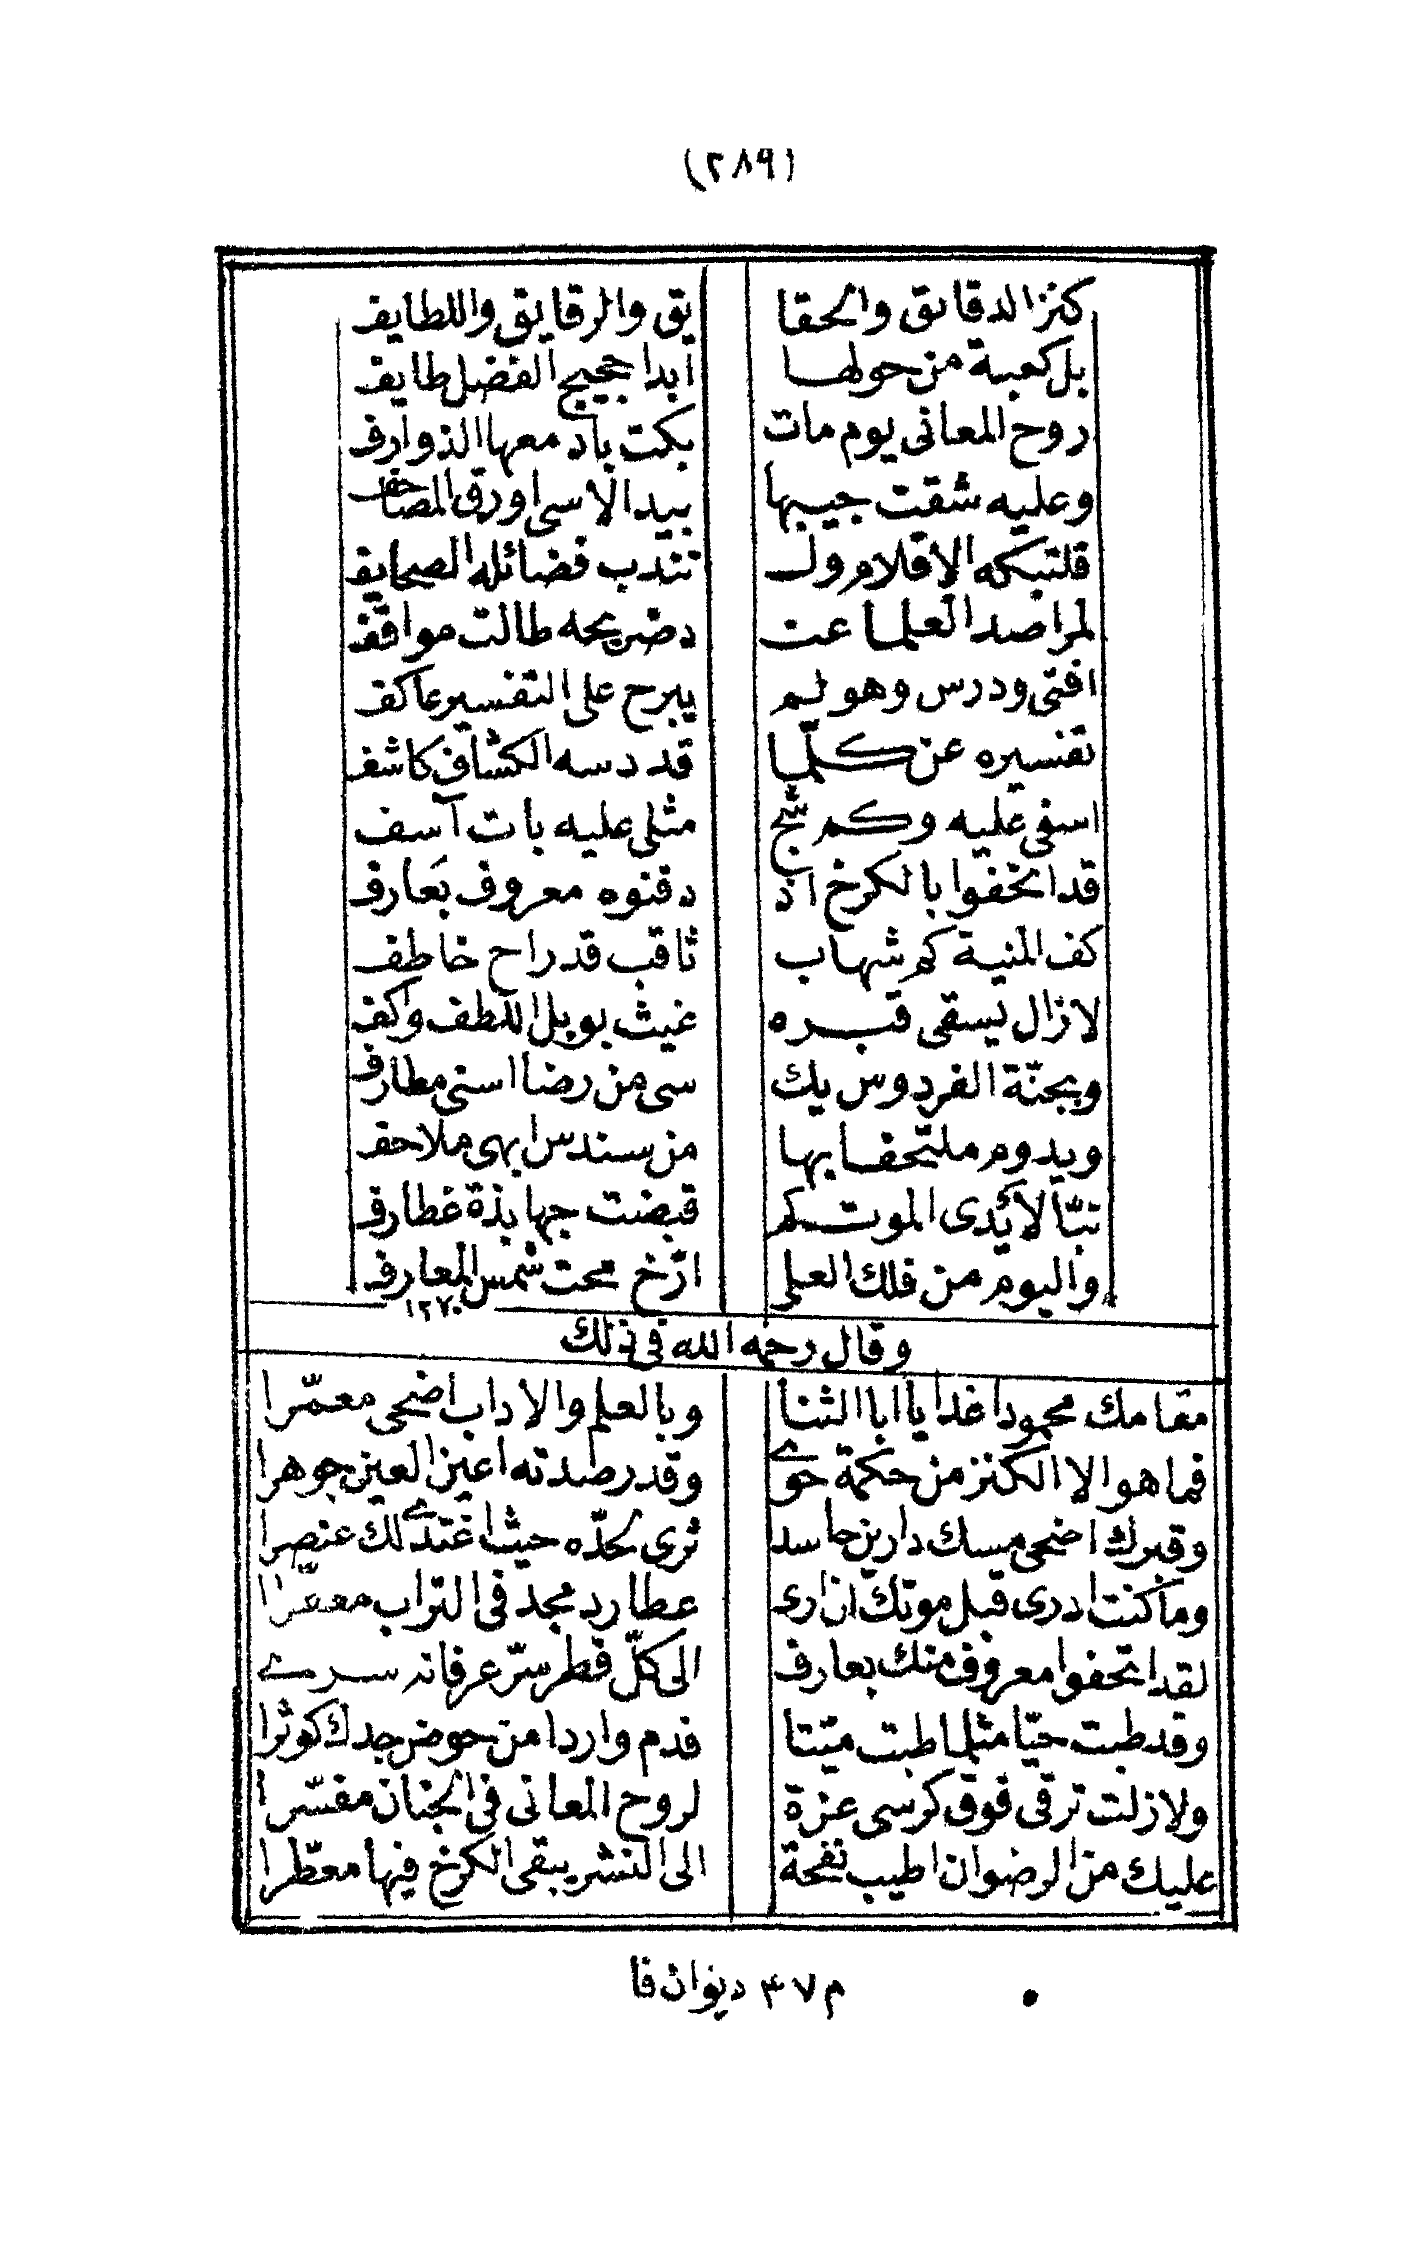 (٢٨٩)
كنز الدقايق والحقا يق والرقايق واللطايف
بل كعبة من حولها ابدا حجيج الفضل طايف
روح المعانى يوم مات بكت بادمعها الذوارف
وعليه شقت جيبها بيد الاسى اورق المصاحف
فلتبكه الاقلام ول تندب فضائله الصحايف
لمراصد العلما عت د ضريحه طالت مواقف
افتى ودرس وهو لم يبرح على التفسير عاكف
تفسيره عن كلّما قد دسه الكشاف كاشف
اسفى عليه وكم شج مثلى عليه بات آسف
قد اتحفوا بالكرخ اذ دفنوه معروف بعارف
كف المنية كم شهاب ثاقب قد راح خاطف
لازال يسقى قبره غيث بوبل اللطف واكف
وبجنّة الفردوس يك سى من رضا اسنى مطارف
ويدوم ملتحفا بها من سندس ابهى ملاحف
تبّا لأيدى الموت كم قبضت جهابذة غطارف
واليوم من فلك العلى ارّخ محت شمس المعارف
١٢٧٠
وقال رحمه الله فى ذلك
مقامك محمودا غدا يا ابا الثنا وبالعلم والاداب اضحى معمّرا
فما هو الا الكنز من حكمة حوى وقد رصدته اعين العين جوهرا
وقبرك اضحى مسك دارين حاسد ثرى لحدّه حيث اغتدى لك عنصرا
وما كنت ادرى قبل موتك ان ارى عطارد مجد فى التراب معفّرا
لقد اتحفوا معروف منك بعارف الى كلّ قطر سرّ عرفانه سرى
وقد طبت حيّا مثلما طبت ميّتا فدم واردا من حوض جدك كوثرا
ولا زلت ترقى فوق كرسى عزة لروح المعانى فى الجنان مفسّرا
عليك من الرضوان اطيب نفحة الى النشر يبقى الكرخ فيها معطّرا
م ٤٧ ديوان فا